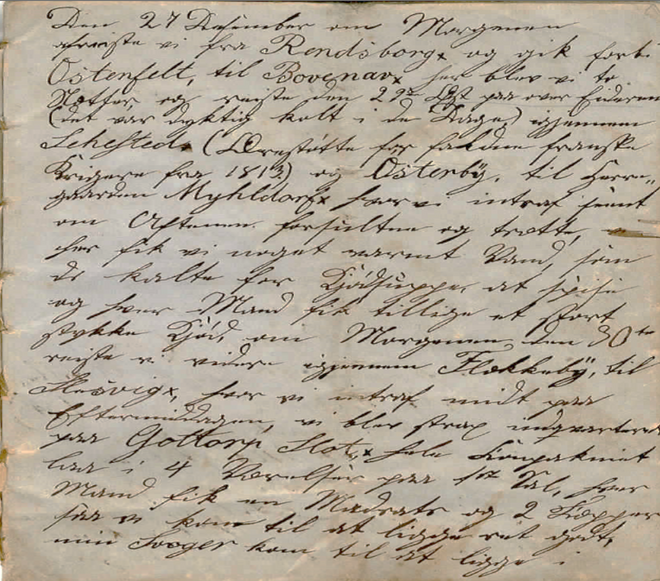 Den 27 Desember om Morgenen
afreiste vi fra Rendsborg, og gik forbi
Ostenfelt, til Bovenav, her blev vi to
Netter og reiste den 29de Øst paa over Eideren
(det var dygtig kolt i de Dage) igjennem
Sehested, (Ærestøtte for faldne franske
Krigere fra 1813) og Østerbÿ, til Herre„
gaarden Myhldorf, hvor vi intraf seent
om Aftenen forsultne og trætte,
her fik vi noget varmt Vand, som
de kalte for Kjödsuppe at spise
og hver Mand fik tillige et stort
stykke Kjöd, om Morgenen den 30te
reiste vi videre igjennem Fløkkebÿ, til
Slesvig, hvor vi intraf midt paa
Eftermiddagen, vi blev strax indqvarteret
paa Gottorp Slot, hele Kompakniet
laa i 4 Værelser paa 1ste Sal, hver
Mand fik en Madrats og 2 Tæpper
saa vi kom til at ligge ret godt,
min Svoger kom til at ligge i